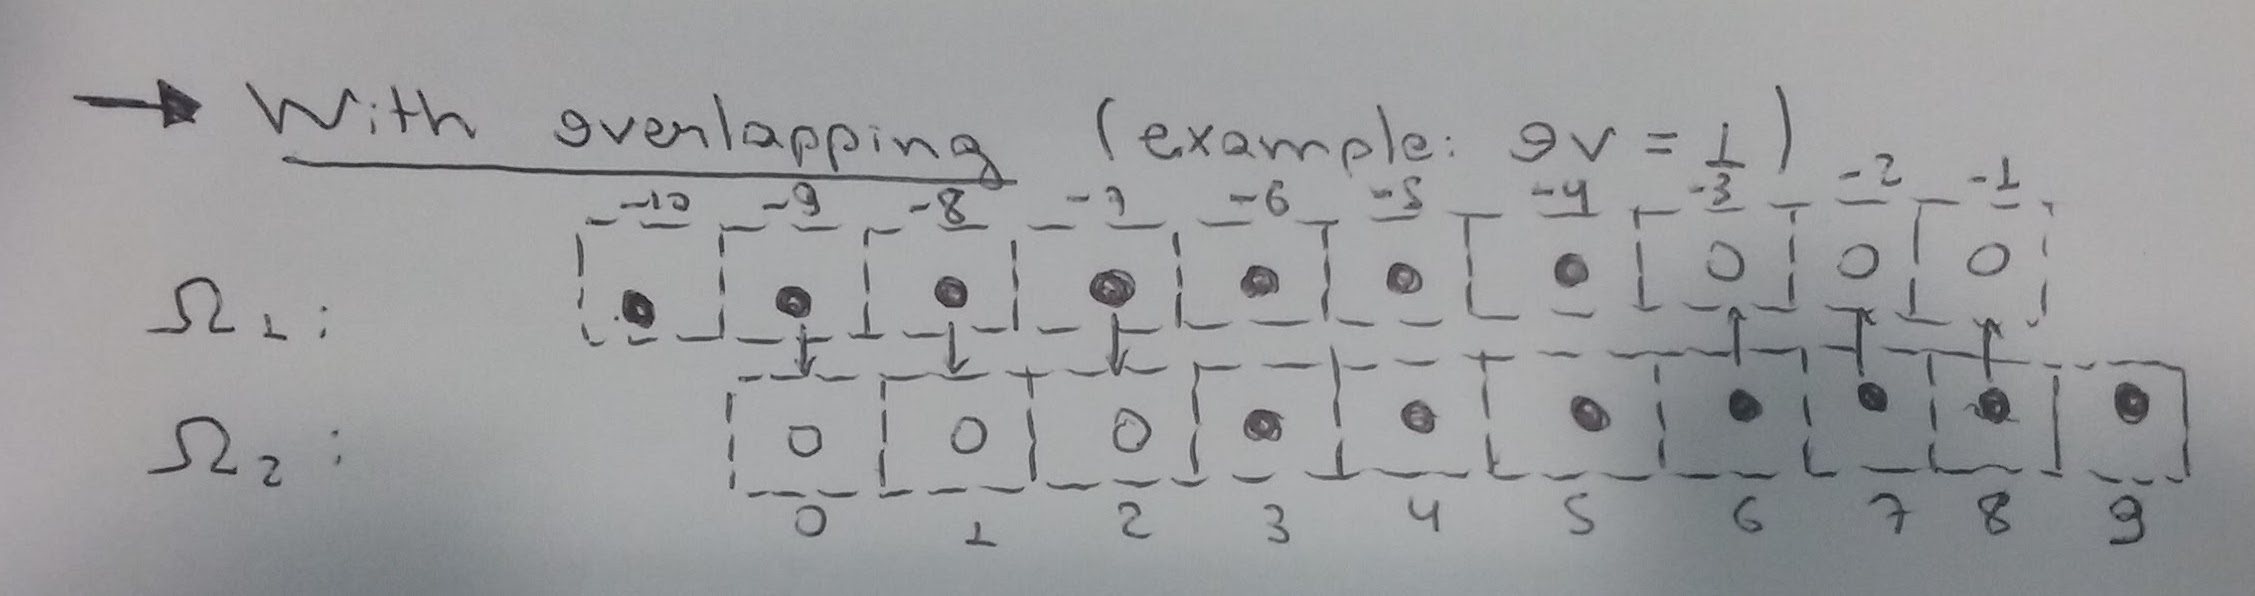 → With overlapping (example: ov = 1)
-10 -9 -8 -7 -6 -5 -4 -3 -2 -1
Ω1:
Ω2:
0 1 2 3 4 5 6 7 8 9